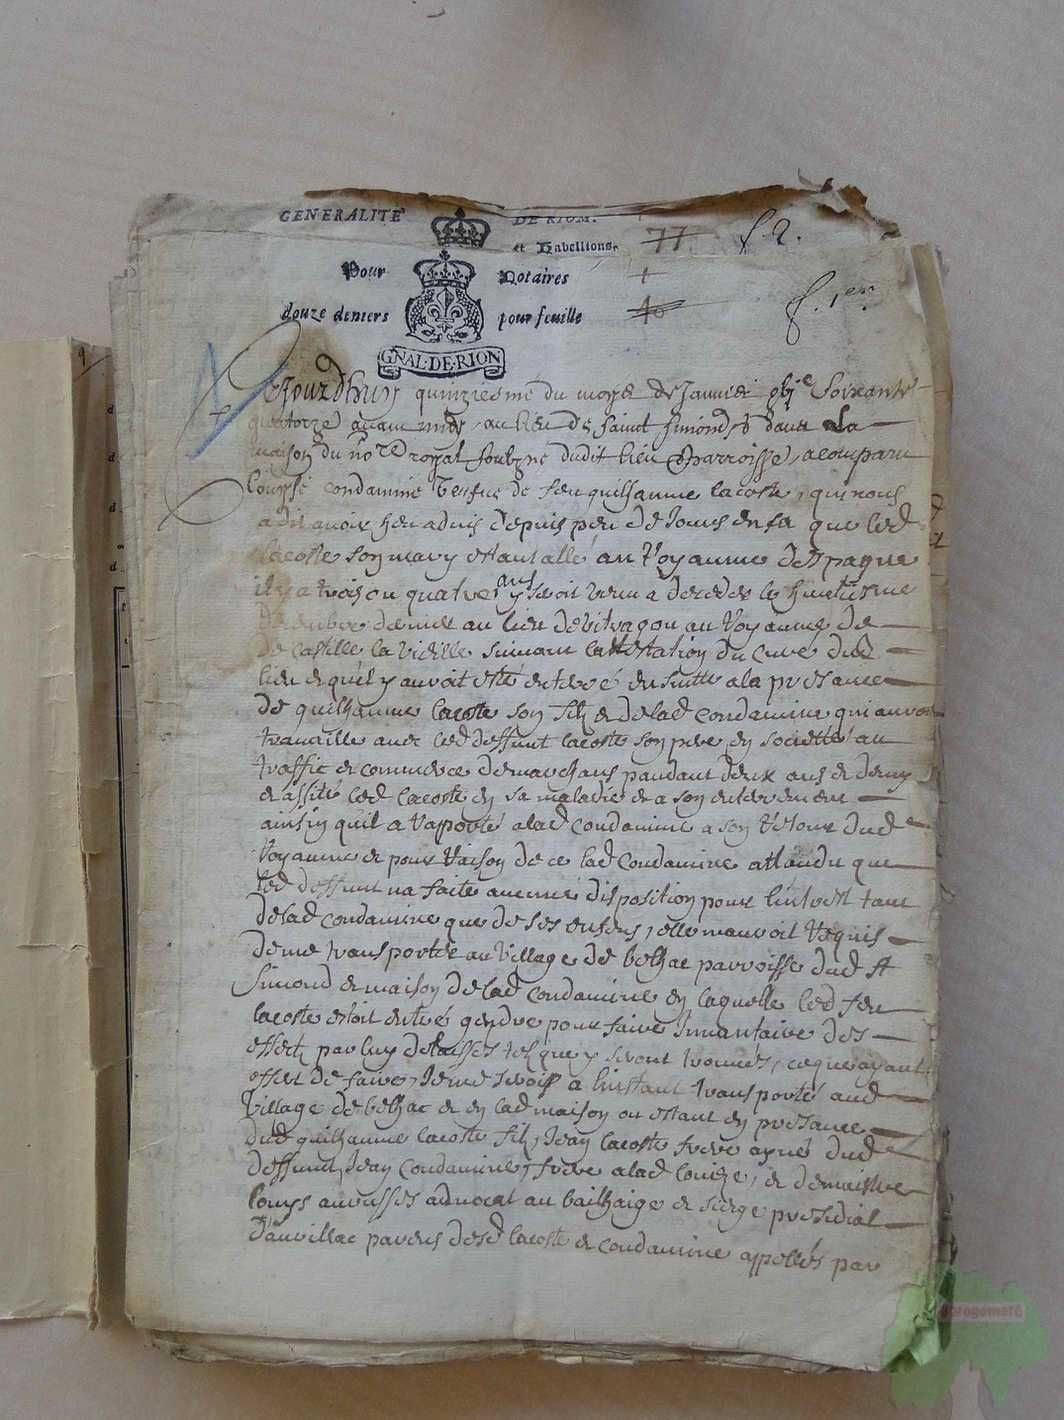 GENERALITE DE RIOM.
et Tabellions. 77 f. 2.
Pour Notaires +
douze deniers pour feuille 40 f. 1er
GNAL·DE·RION
Aujourdhuy quinziesme du moys de Janvier soixante
quatorze avant midy au lieu de Saint Simond & dans la
maison du nore royal soubzne dudit lieu & parroisse, a comparu
Louyse Condamine vesfue de feu guilhaume lacoste, qui nous
a dit avoir heu advis depuis peu de jours en sa que led
lacoste son mary estant allé au Royaume despagne
il y a trois ou quatre ans y seroit venu a deceder le huictiesme
decembre dernier au lieu de bitragou au Royaume de
de Castille la vieille suivant lattestation du curé dud
lieu et quil y auroit esté enterré ensuitte a la presance
de guilhaume lacoste son filz et de lad condamine qui avoit
travaillé avec led deffunt lacoste son pere en societté au
traffic et commerce de marchans pandant deux ans et demy
et assisté led lacoste en sa maladie et a son enterrement
ainsin quil a rapporté a lad condamine a son retour dud
Royaume et pour raison de ce lad condamine attandu que
led deffunt na faite aucune disposition pour linterest tant
de lad condamine que de ses enfens, elle mauroit requis
de me transporter au village de belhac parroisse dud St
Simond et maison de lad condamine en laquelle led feu
lacoste estoit entré gendre pour faire Inventaire des
effectz par luy delaisses telz que y seront trouvés, ce que ayant
offert de faire, Je me serois a linstant transporté aud
Village de belhac et en lad maison ou estant en presance
dud guilhaume lacoste filz, Jean lacoste frere ayné dud
deffunt, Jean Condamine, frere a lad Louize, et de maistre
Louys advocat au bailhaige et siege presidial
Daurillac parens desd lacoste et condamine appellés par